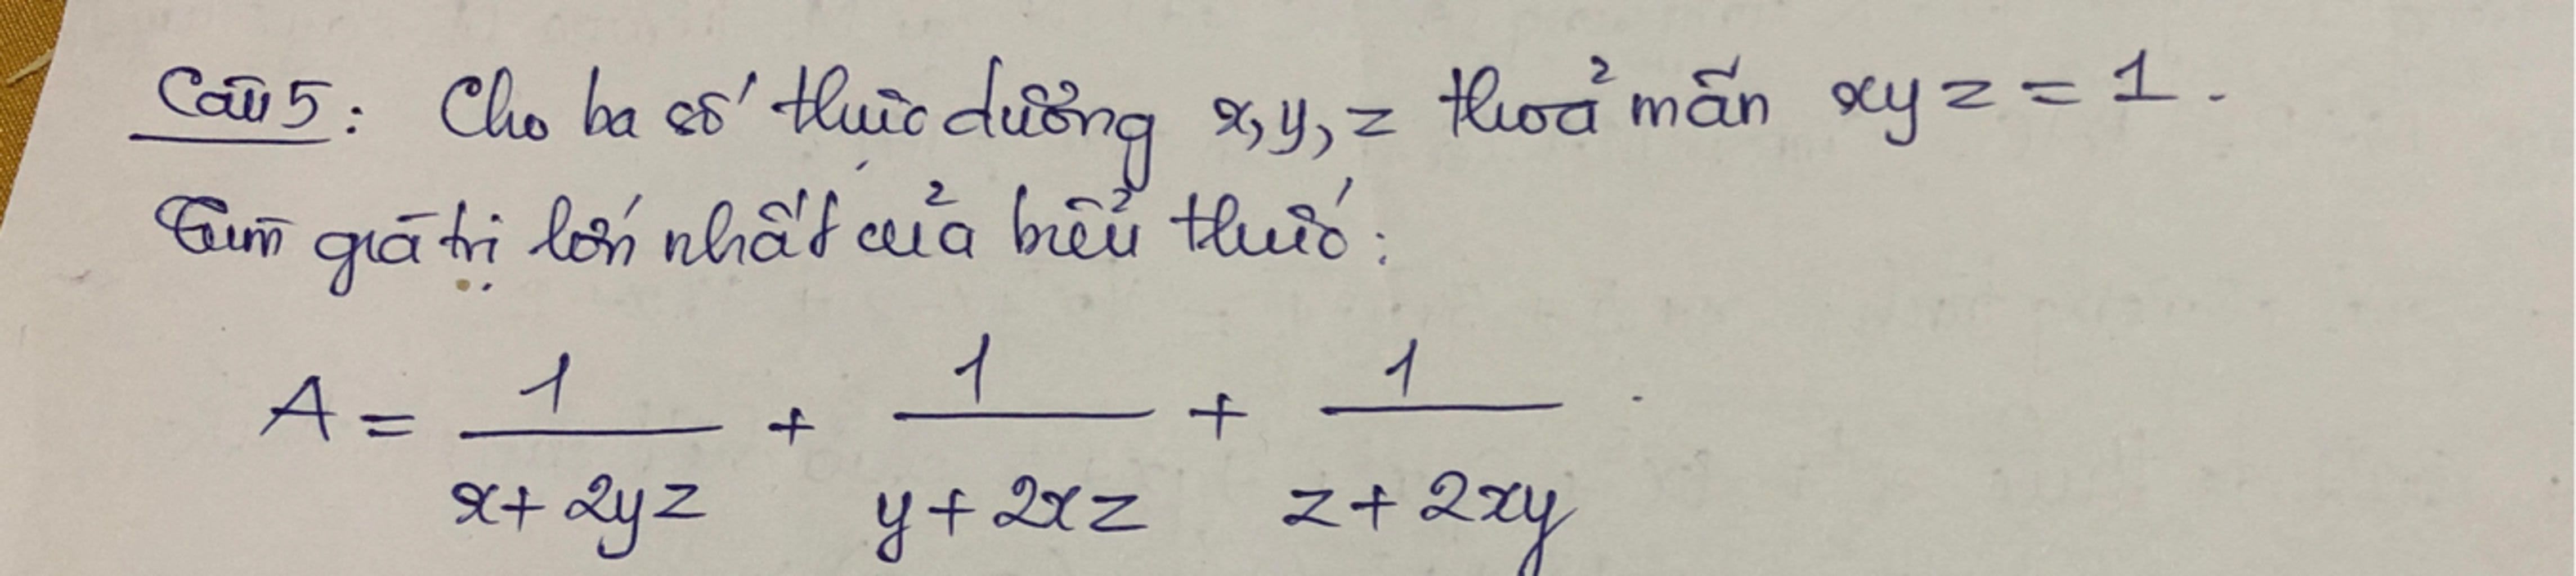 Câu 5: Cho ba số thực dương x, y, z thoả mãn xyz = 1.
Tìm giá trị lớn nhất của biểu thức:
A = 1/(x + 2yz) + 1/(y + 2xz) + 1/(z + 2xy).